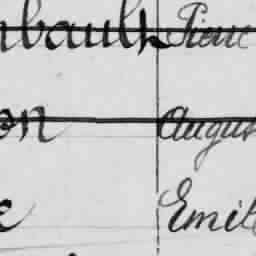 nbault Pierre
on Augus
e Emil